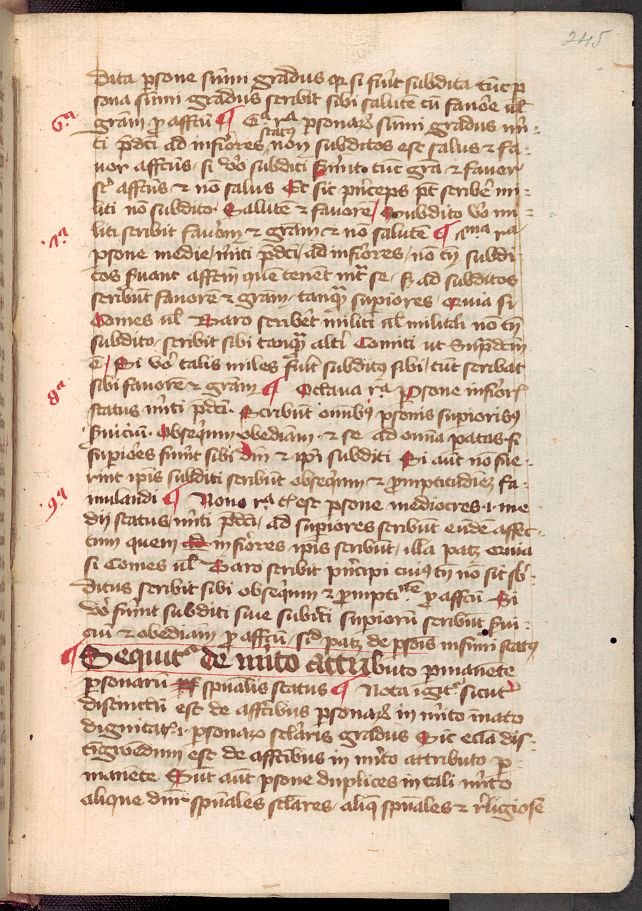 245
data persone summi gradus qr si sunt subdita tunc per
sona summi gradus scribit sibi salutem cum favore vel
6ª
gratiam pro affectu ¶ Cª rª personarum summi gradus
status
ti predicti ad inferiores non subditos est salus et fa-
vor affectus, si vero subditi fuerint tunc gratia et favor
affectus et non salus Et sic princeps potest scribere mi-
liti non subdito. Salutem et favorem, Subdito vero mi-
7ª
liti scribit favorem et gratiam et non salutem ¶ rª
persone medie, predicti, ad inferiores, non tamen subdi
tos servant affectum que tenent se, ad subditos
scribunt favorem et gratiam, tanquam superiores Quia si
Comes vel Baro scriberet militi vel non tamen
subdito, scribit sibi tanquam alteri Comiti ut
Si vero talis miles fuerit subditus sibi, tunc scribat
8ª
sibi favorem et gratiam ¶ Octava rª Persone inferioris
status predicti. Scribunt omnibus personis superioribus
servicium. Obsequium obedienciam et se ad omnia si
superiores fuerint sibi domini et ipsi subditi Si autem non fue-
rint ipsis subditi scribunt obsequium et promptitudinem fa-
9ª
mulandi ¶ Nona rª est persone mediocres i. me-
dii status, predicti, ad superiores scribunt eundem affec-
tum quem inferiores ipsis scribunt, illa patet Quia
si Comes vel Baro scribit principi cuius tamen non sit sub-
ditus scribit sibi obsequium et pro affectu Si
vero fuerint subditi sue superiorum scribunt servi-
cium et obedienciam pro affectu sicut patet de personis infimi status
¶ Sequitur de merito attributo permanente
personarum spiritualis status ¶ Nota igitur sicut
distinctum est de affectibus personarum in merito innato
dignitatis i. personarum secularis gradus Sic eciam dis-
tigwendum est de affectibus in merito attributo per-
manente. Sunt autem persone duplices in tali merito
alique dicuntur spirituales seculares, aliqui spirituales et religiose